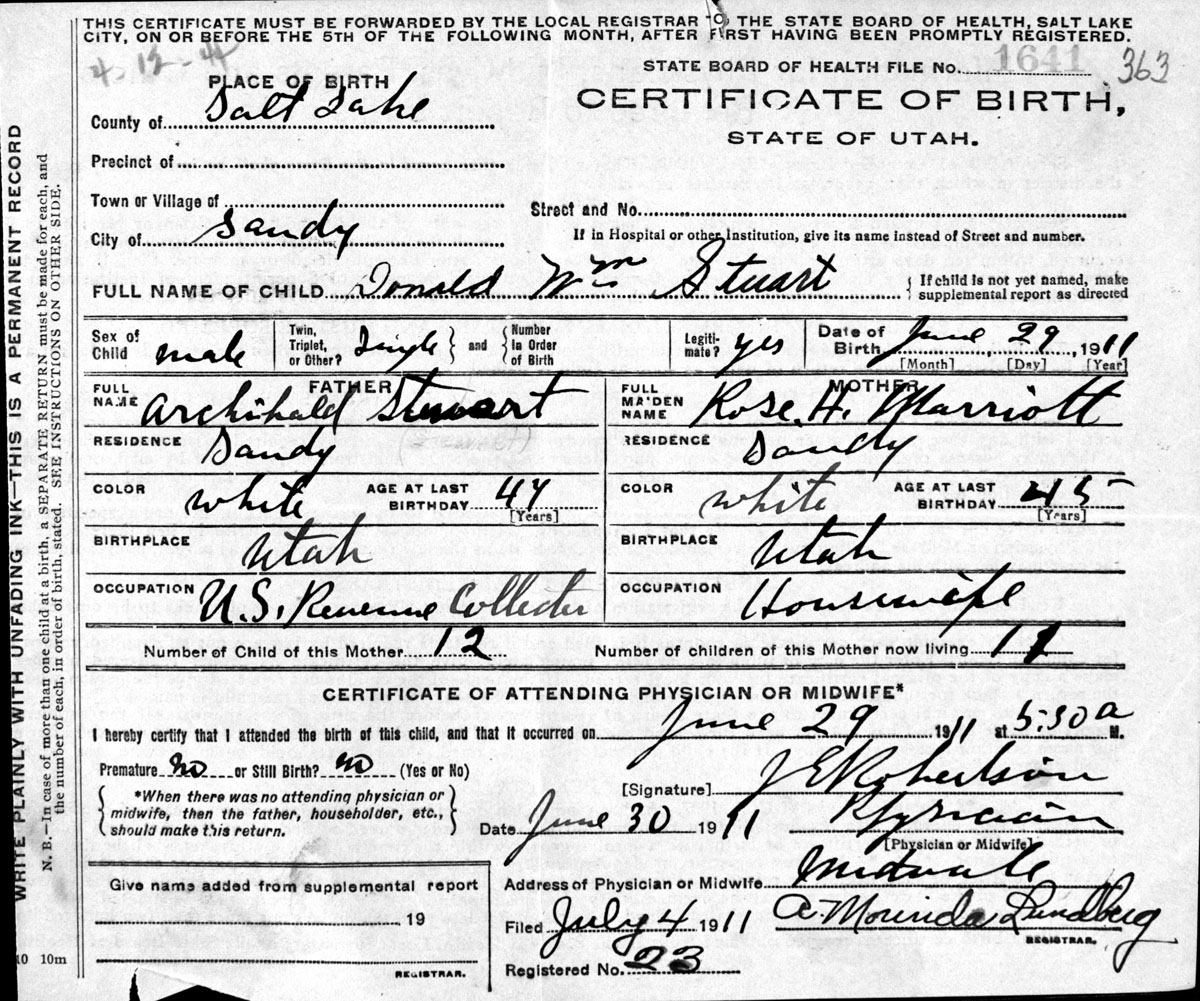 THIS CERTIFICATE MUST BE FORWARDED BY THE LOCAL REGISTRAR TO THE STATE BOARD OF HEALTH, SALT LAKE
CITY, ON OR BEFORE THE 5TH OF THE FOLLOWING MONTH, AFTER FIRST HAVING BEEN PROMPTLY REGISTERED.
4-12-44
STATE BOARD OF HEALTH FILE No. 1641 363
PLACE OF BIRTH
CERTIFICATE OF BIRTH,
County of Salt Lake
STATE OF UTAH.
Precinct of
Town or Village of
Street and No.
City of Sandy
If in Hospital or other Institution, give its name instead of Street and number.
FULL NAME OF CHILD Donald Wm Stuart { If child is not yet named, make
supplemental report as directed
Sex of Child male Twin, Triplet, or Other? Single } and { Number in Order of Birth Legiti- mate? yes Date of Birth June 29, 1911
[Month] [Day] [Year]
FATHER MOTHER
FULL NAME Archibald Stuart FULL MAIDEN NAME Rose H. Marriott
RESIDENCE Sandy RESIDENCE Sandy
COLOR white AGE AT LAST BIRTHDAY 47 [Years] COLOR white AGE AT LAST BIRTHDAY 45 [Years]
BIRTHPLACE Utah BIRTHPLACE Utah
OCCUPATION U.S. Revenue Collector OCCUPATION Housewife
Number of Child of this Mother 12 Number of children of this Mother now living 11
CERTIFICATE OF ATTENDING PHYSICIAN OR MIDWIFE*
I hereby certify that I attended the birth of this child, and that it occurred on June 29 1911 at 5:30 a M.
Premature no or Still Birth? no (Yes or No)
[Signature] J E Robertson
{ *When there was no attending physician or
midwife, then the father, householder, etc.,
should make this return. }
Date June 30 1911 Physician
[Physician or Midwife]
Give name added from supplemental report
Address of Physician or Midwife Midvale
19
Filed July 4 1911 A. Mourida Lundberg
REGISTRAR.
REGISTRAR.
Registered No. 23
10 10m
WRITE PLAINLY WITH UNFADING INK—THIS IS A PERMANENT RECORD
N. B.—In case of more than one child at a birth, a SEPARATE RETURN must be made for each, and
the number of each, in order of birth, stated. SEE INSTRUCTIONS ON OTHER SIDE.